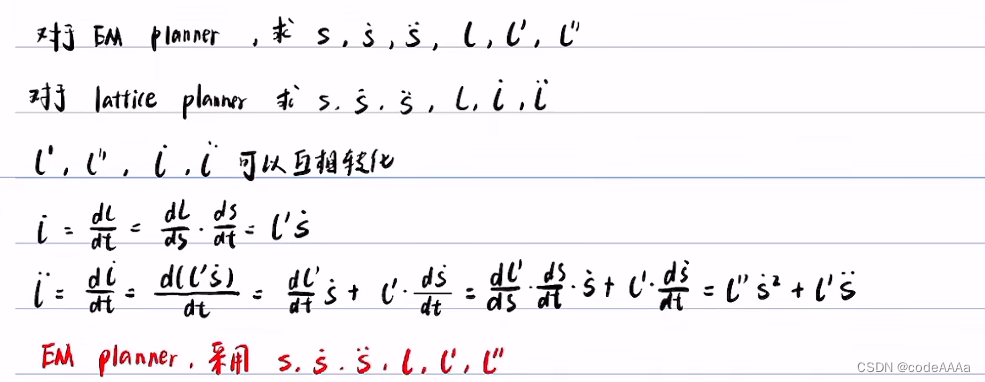 对于 EM planner , 求 s , ṡ , s̈ , l , l' , l''
对于 lattice planner 求 s . ṡ . s̈ , l , l̇ , l̈
l' , l'' , l̇ , l̈ 可以互相转化
l̇ = dl/dt = dl/ds · ds/dt = l'ṡ
l̈ = dl̇/dt = d(l'ṡ)/dt = dl'/dt ṡ + l' · dṡ/dt = dl'/ds · ds/dt · ṡ + l' · dṡ/dt = l'' ṡ² + l' s̈
EM planner , 采用 s . ṡ . s̈ , l , l' , l''
CSDN @codeAAAa